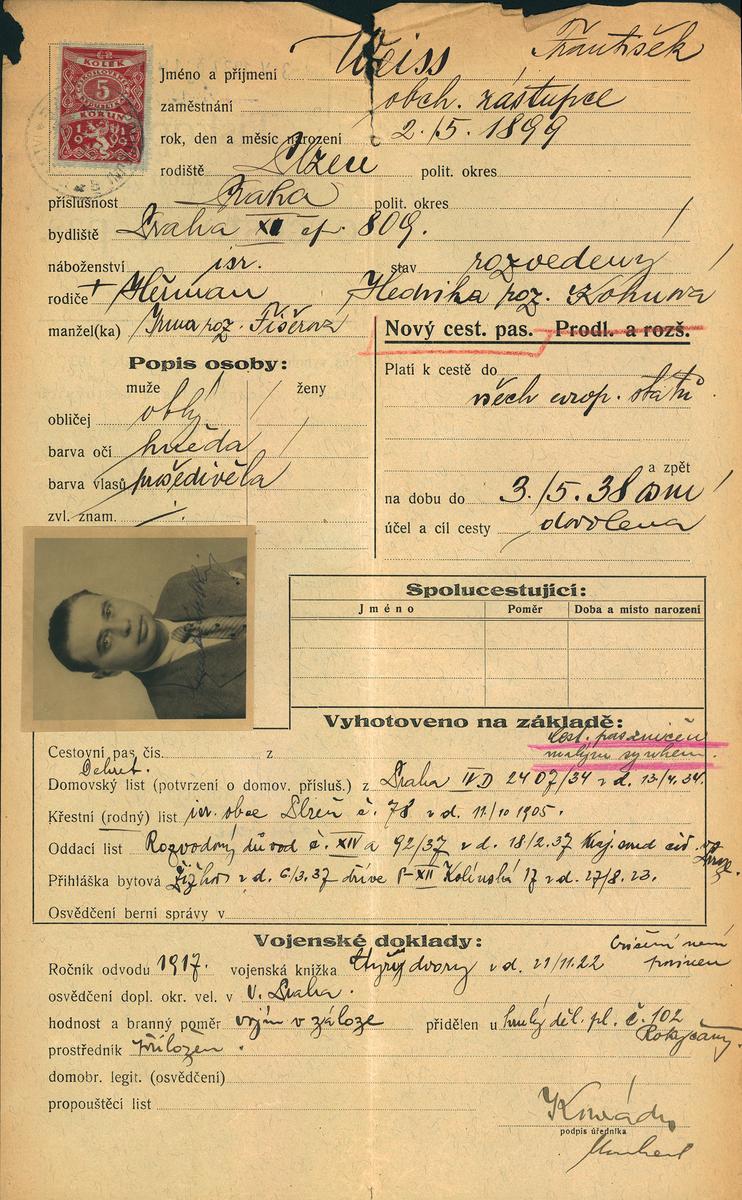 KOLEK
5
KORUN
Jméno a příjmení Weiss František
zaměstnání obch. zástupce
rok, den a měsíc narození 2./5. 1899
rodiště Plzeň polit. okres
příslušnost Praha polit. okres
bydliště Praha XI čp. 809.
náboženství isr. stav rozvedený
rodiče + Heřman Hedvika roz. Kohnová
manžel(ka) Irma roz. Fišerová
Nový cest. pas. Prodl. a rozš.
Popis osoby:
muže ženy
obličej oblý
barva očí hnědá
barva vlasů prošedivělá
zvl. znam. /.
Platí k cestě do
všech evrop. států
a zpět
na dobu do 3./5. 38
účel a cíl cesty dovolená
Spolucestující:
Jméno Poměr Doba a místo narození
Vyhotoveno na základě:
Cest. pas zničen
malým synkem.
Cestovní pas čís. z
Dekret.
Domovský list (potvrzení o domov. přísluš.) z Praha IV D 2407/34 v d. 13/4. 34.
Křestní (rodný) list isr. obce Plzeň č. 78 v d. 11/10 1905.
Oddací list Rozvodový důvod č. XIV a 92/37 v d. 18/2. 37 Kraj. soud civ. v Praze.
Přihláška bytová Žižkov v d. 6/3. 37 dříve P-XII Kolínská 17 v d. 27/8. 23.
Osvědčení berní správy v
Vojenské doklady:
cvičení není
povinen
Ročník odvodu 1917. vojenská knížka Čtyry dvory v d. 21/11. 22
osvědčení dopl. okr. vel. v V. Praha.
hodnost a branný poměr vojín v záloze přidělen u hrubý děl. pl. č. 102
Rokycany.
prostředník přiložen.
domobr. legit. (osvědčení)
propouštěcí list
podpis úředníka